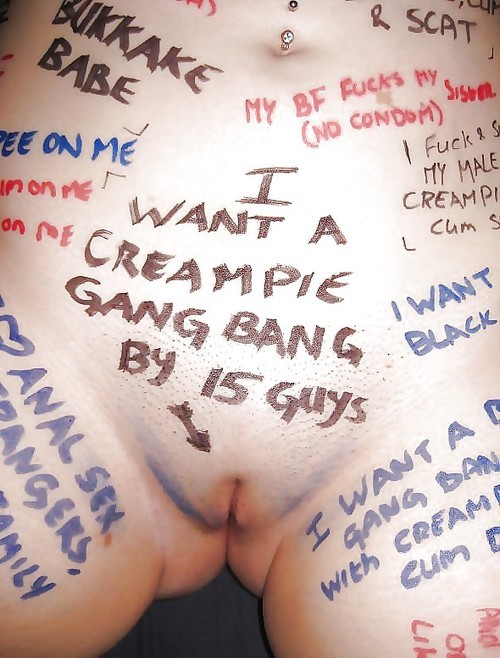 BUKKAKE
BABE
& SCAT
MY BF FUCKS MY SISTER
(NO CONDOM)
PEE ON ME
ON ME
ON ME
I FUCK &
MY MALE
CUM
I
WANT A
CREAMPIE
GANG BANG
BY 15 GUYS
I WANT
BLACK
ANAL SEX,
I WANT A
GANG BANG
WITH
CUM